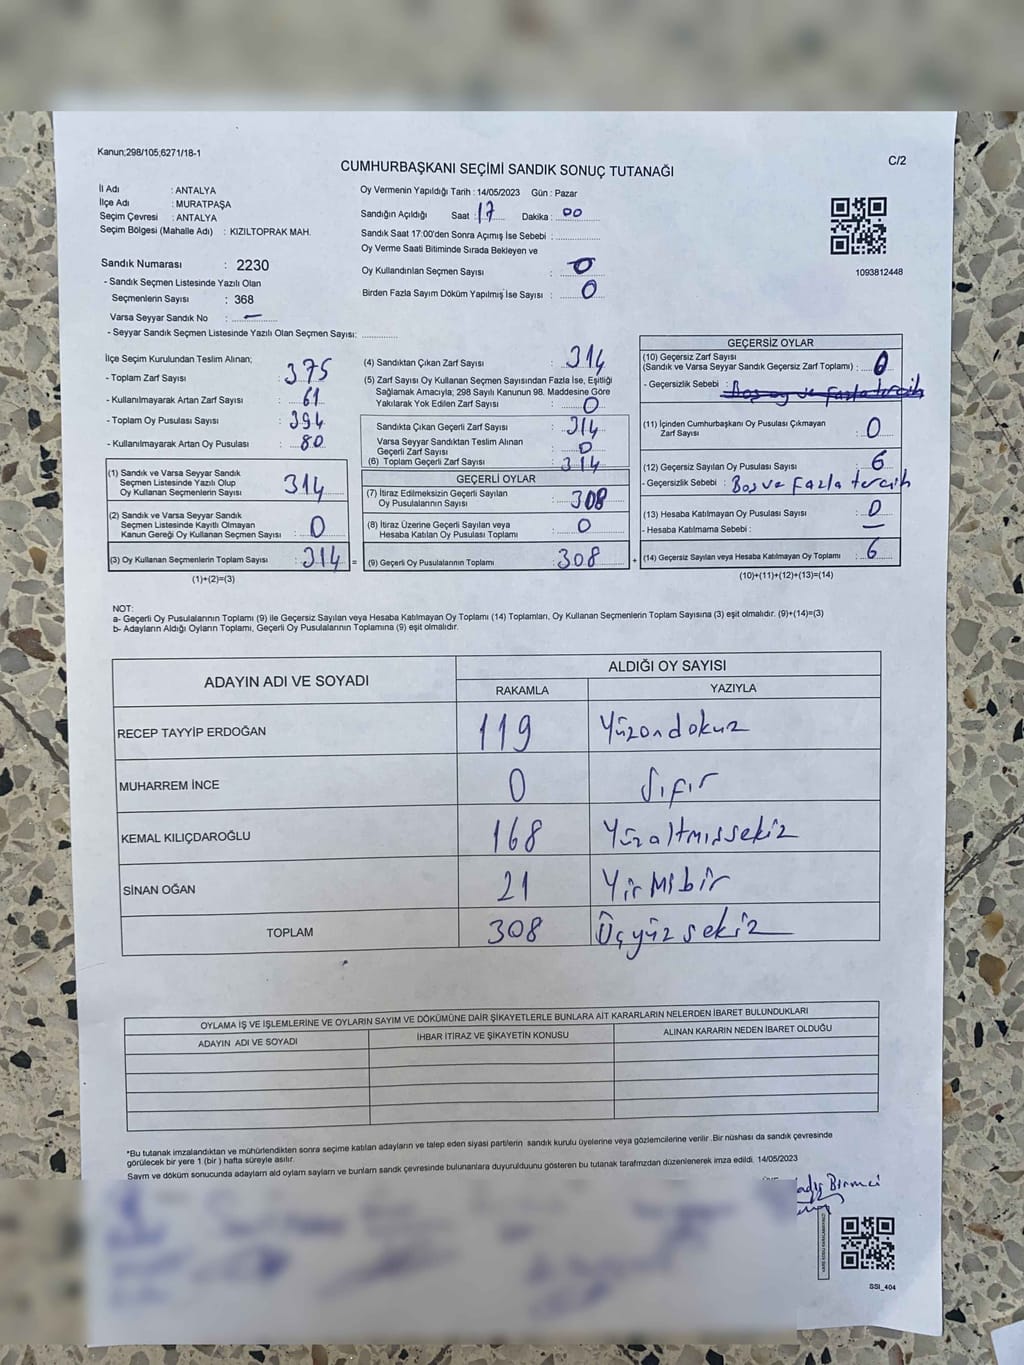 Kanun;298/105;6271/18-1
C/2
CUMHURBAŞKANI SEÇİMİ SANDIK SONUÇ TUTANAĞI
İl Adı : ANTALYA
İlçe Adı : MURATPAŞA
Seçim Çevresi : ANTALYA
Seçim Bölgesi (Mahalle Adı) : KIZILTOPRAK MAH.
Sandık Numarası : 2230
- Sandık Seçmen Listesinde Yazılı Olan
Seçmenlerin Sayısı : 368
Varsa Seyyar Sandık No : —
- Seyyar Sandık Seçmen Listesinde Yazılı Olan Seçmen Sayısı:
Oy Vermenin Yapıldığı Tarih : 14/05/2023 Gün : Pazar
Sandığın Açıldığı Saat : 17 Dakika : 00
Sandık Saat 17:00'den Sonra Açımış İse Sebebi :
Oy Verme Saati Bitiminde Sırada Bekleyen ve
Oy Kullandırılan Seçmen Sayısı : 0
Birden Fazla Sayım Döküm Yapılmış İse Sayısı : 0
1093812448
İlçe Seçim Kurulundan Teslim Alınan;
- Toplam Zarf Sayısı : 375
- Kullanılmayarak Artan Zarf Sayısı : 61
- Toplam Oy Pusulası Sayısı : 394
- Kullanılmayarak Artan Oy Pusulası : 80
(1) Sandık ve Varsa Seyyar Sandık
Seçmen Listesinde Yazılı Olup
Oy Kullanan Seçmenlerin Sayısı : 314
(2) Sandık ve Varsa Seyyar Sandık
Seçmen Listesinde Kayıtlı Olmayan
Kanun Gereği Oy Kullanan Seçmen Sayısı : 0
(3) Oy Kullanan Seçmenlerin Toplam Sayısı : 314 =
(1)+(2)=(3)
(4) Sandıktan Çıkan Zarf Sayısı : 314
(5) Zarf Sayısı Oy Kullanan Seçmen Sayısından Fazla İse, Eşitliği
Sağlamak Amacıyla; 298 Sayılı Kanunun 98. Maddesine Göre
Yakılarak Yok Edilen Zarf Sayısı : 0
Sandıkta Çıkan Geçerli Zarf Sayısı : 314
Varsa Seyyar Sandıktan Teslim Alınan
Geçerli Zarf Sayısı : 0
(6) Toplam Geçerli Zarf Sayısı : 314
GEÇERLİ OYLAR
(7) İtiraz Edilmeksizin Geçerli Sayılan
Oy Pusulasının Sayısı : 308
(8) İtiraz Üzerine Geçerli Sayılan veya
Hesaba Katılan Oy Pusulası Toplamı : 0
(9) Geçerli Oy Pusulalarının Toplamı : 308 +
GEÇERSİZ OYLAR
(10) Geçersiz Zarf Sayısı
(Sandık ve Varsa Seyyar Sandık Geçersiz Zarf Toplamı) : 0
- Geçersizlik Sebebi : Boş oy ve Fazla tercih
(11) İçinden Cumhurbaşkanı Oy Pusulası Çıkmayan
Zarf Sayısı : 0
(12) Geçersiz Sayılan Oy Pusulası Sayısı : 6
- Geçersizlik Sebebi : Boş ve Fazla tercih
(13) Hesaba Katılmayan Oy Pusulası Sayısı : 0
- Hesaba Katılmama Sebebi : —
(14) Geçersiz Sayılan veya Hesaba Katılmayan Oy Toplamı : 6
(10)+(11)+(12)+(13)=(14)
NOT:
a- Geçerli Oy Pusulalarının Toplamı (9) ile Geçersiz Sayılan veya Hesaba Katılmayan Oy Toplamı (14) Toplamları, Oy Kullanan Seçmenlerin Toplam Sayısına (3) eşit olmalıdır. (9)+(14)=(3)
b- Adayların Aldığı Oyların Toplamı, Geçerli Oy Pusulalarının Toplamına (9) eşit olmalıdır.
ADAYIN ADI VE SOYADI
ALDIĞI OY SAYISI
RAKAMLA YAZIYLA
RECEP TAYYİP ERDOĞAN 119 Yüzondokuz
MUHARREM İNCE 0 Sıfır
KEMAL KILIÇDAROĞLU 168 Yüzaltmışsekiz
SİNAN OĞAN 21 Yirmibir
TOPLAM 308 Üçyüzsekiz
OYLAMA İŞ VE İŞLEMLERİNE VE OYLARIN SAYIM VE DÖKÜMÜNE DAİR ŞİKAYETLERLE BUNLARA AİT KARARLARIN NELERDEN İBARET BULUNDUKLARI
ADAYIN ADI VE SOYADI İHBAR İTİRAZ VE ŞİKAYETİN KONUSU ALINAN KARARIN NEDEN İBARET OLDUĞU
*Bu tutanak imzalandıktan ve mühürlendikten sonra seçime katılan adayların ve talep eden siyasi partilerin sandık kurulu üyelerine veya gözlemcilerine verilir. Bir nüshası da sandık çevresinde
görülecek bir yere 1 (bir) hafta süreyle asılır.
Sayım ve döküm sonucunda adayların aldı oyların sayları ve bunların sandk çevresinde bulunanlara duyurulduunu gösteren bu tutanak tarafmzdan düzenlenerek imza edildi. 14/05/2023
Birinci
SSI_404